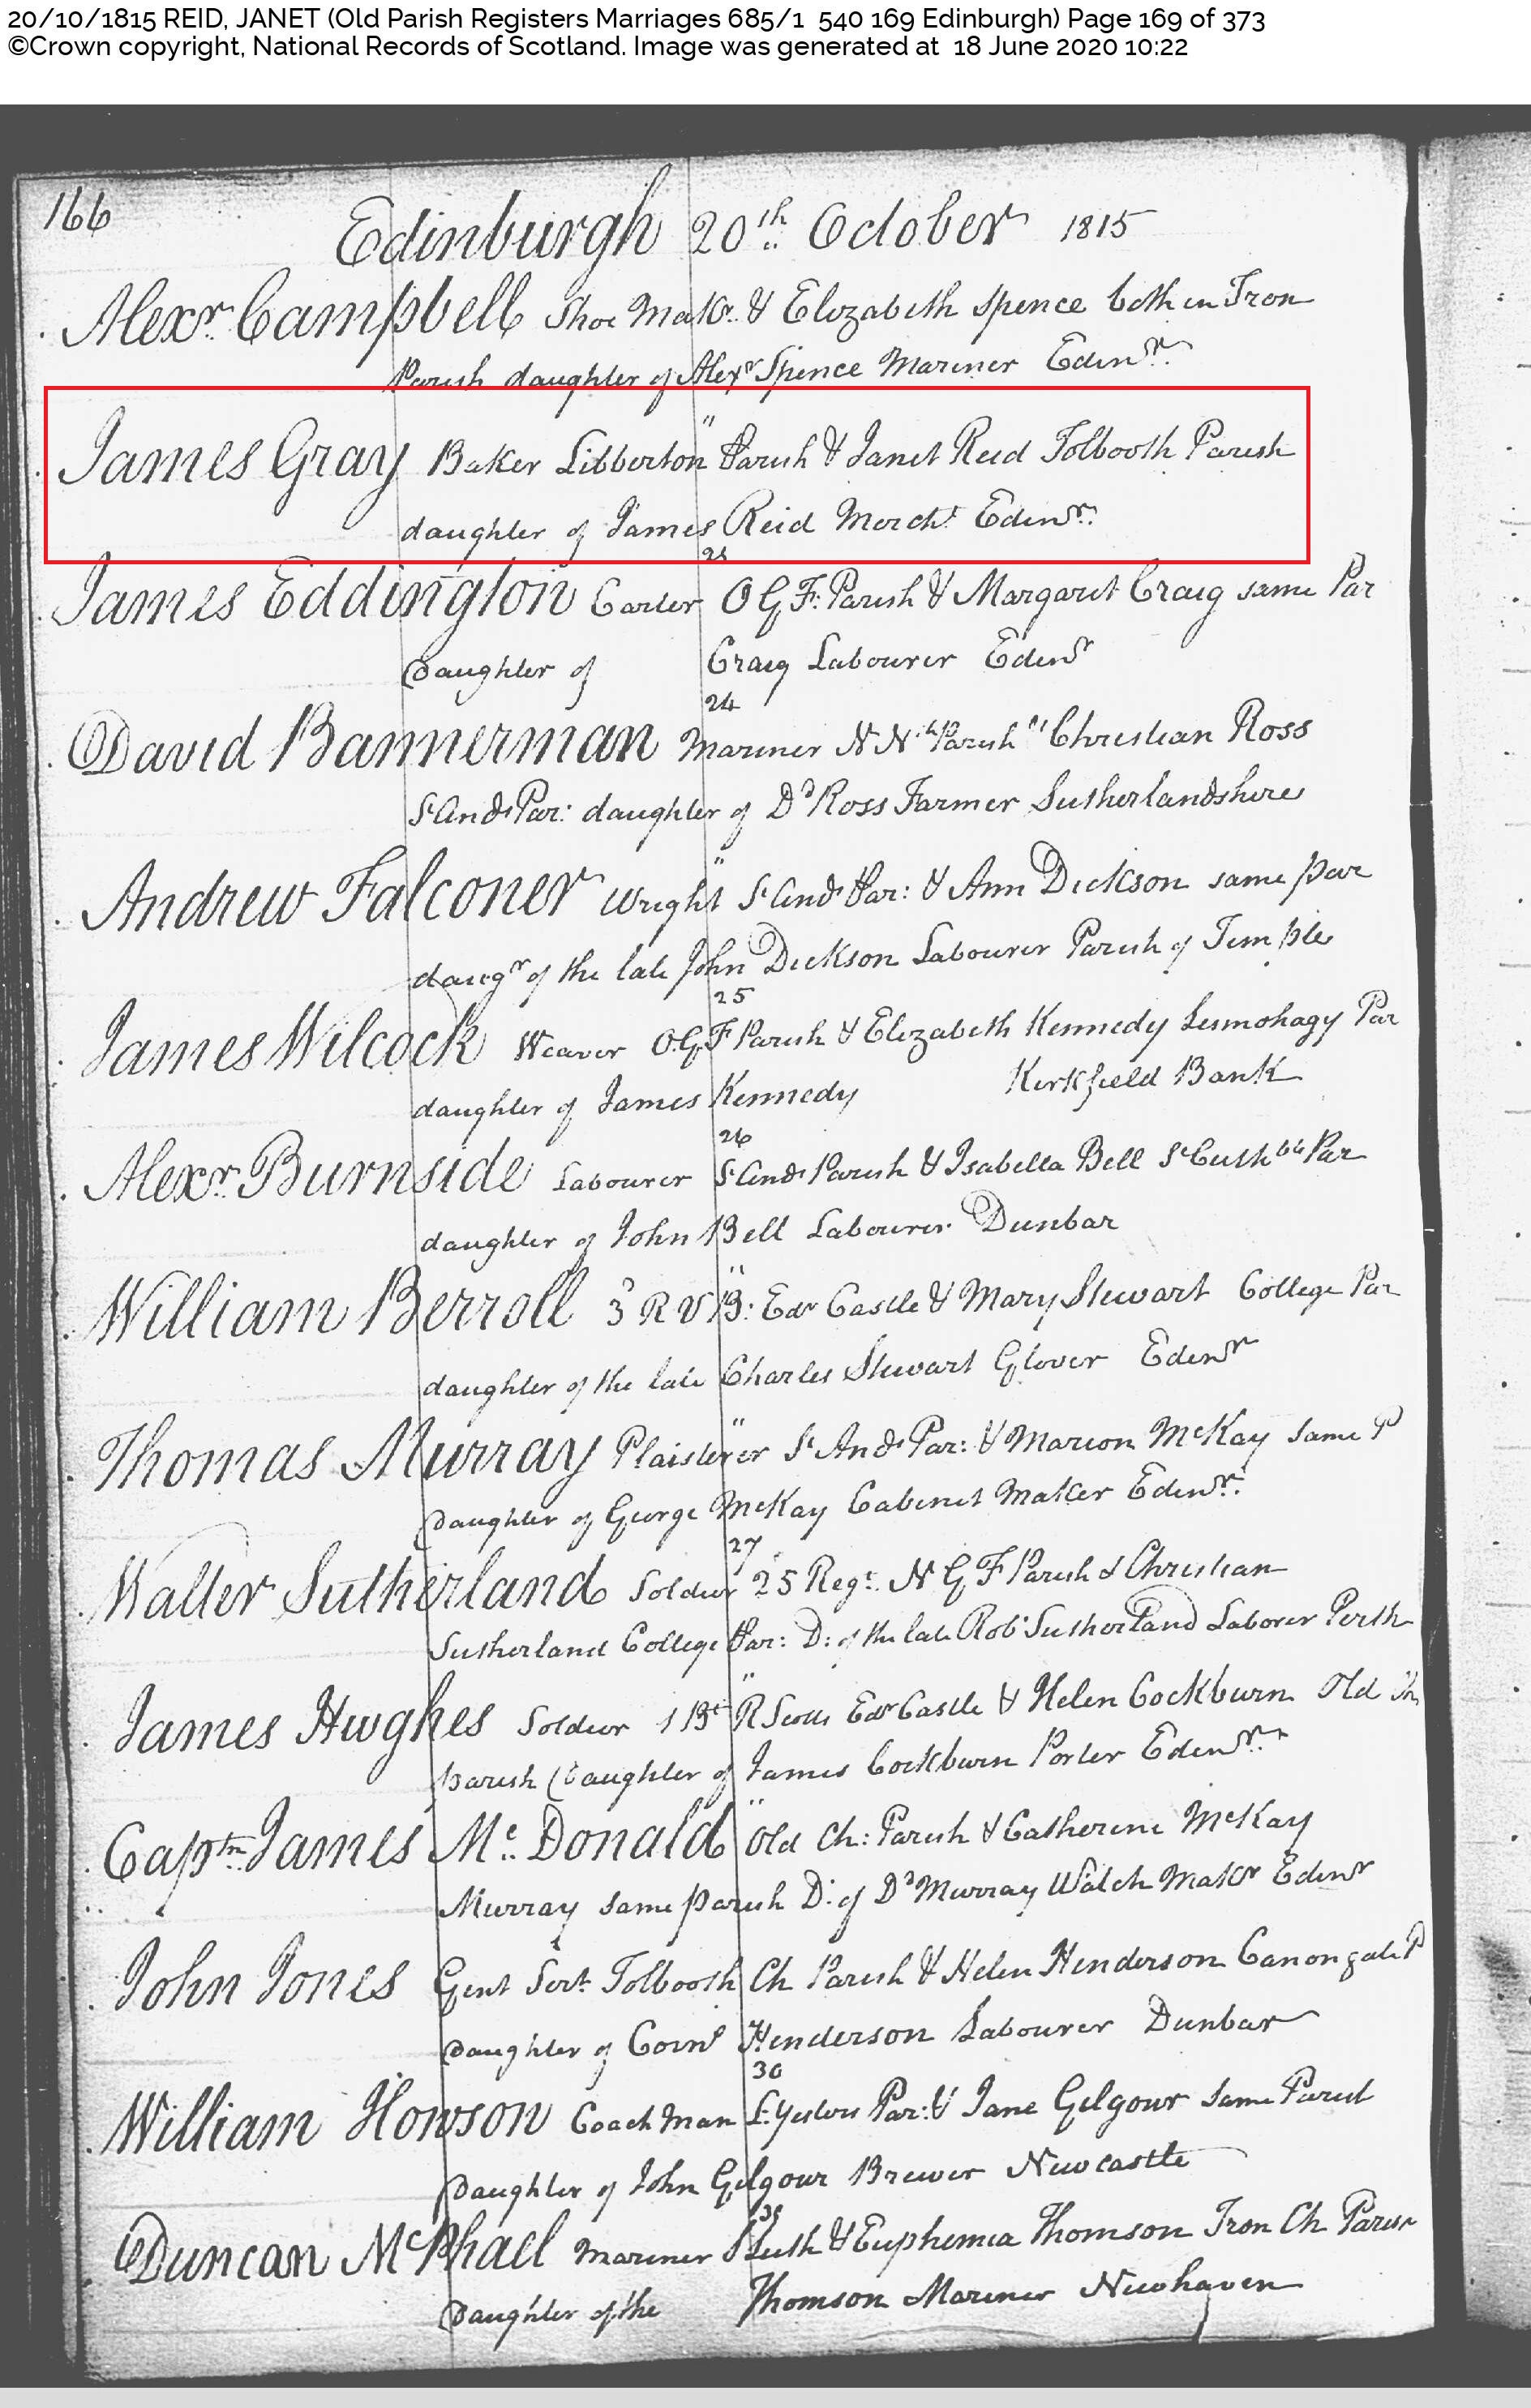 20/10/1815 REID, JANET (Old Parish Registers Marriages 685/1 540 169 Edinburgh) Page 169 of 373
©Crown copyright, National Records of Scotland. Image was generated at 18 June 2020 10:22
166
Edinburgh 20th October 1815
Alexr. Campbell Shoe Makr. & Elizabeth Spence both in Tron
Parish daughter of Alexr Spence Mariner Edinr.
"
James Gray Baker Libberton Parish & Janet Reid Tolbooth Parish
daughter of James Reid Mercht. Edinr.
James Eddington Carter O G F: Parish & Margaret Craig same Par
Daughter of Craig Labourer Edinr
24
David Bannerman Mariner N Nth Parish & Christian Ross
St Andw Par: daughter of Dd Ross Farmer Sutherlandshire
"
Andrew Falconer Wright St Andw Par: & Ann Dickson same par
daugr of the late John Dickson Labourer Parish of Temple
25
James Wilcock Weaver O.G.F Parish & Elizabeth Kennedy Lesmohagy Par
daughter of James Kennedy Kirkfield Bank
26
Alexr. Burnside Labourer St Andw Parish & Isabella Bell St Cuthbts Par
daughter of John Bell Labourer Dunbar
"
William Berroll 3 R V B: Edr Castle & Mary Stewart College Par
daughter of the late Charles Stewart Glover Edinr
"
Thomas Murray Plaisterer St Andw Par: & Marion McKay same P
Daughter of George McKay Cabinet Maker Edinr.
27
Walter Sutherland Soldier 25 Regt. N G F Parish & Christian
Sutherland College Par: D: of the late Robt Sutherland Laborer Perth
"
James Hughes Soldier 1 Bt R Scots Edr Castle & Helen Cockburn Old
parish Daughter of James Cockburn Porter Edinr.
"
Captn. James Mc. Donald Old Ch: Parish & Catherine McKay
Murray same parish D: of Dd Murray Watch Makr Edinr
John Jones Gent Servt. Tolbooth Ch Parish & Helen Henderson Canongate P
Daughter of Henderson Labourer Dunbar
30
William Howson Coach Man L. Yesters Par: & Jane Gilgour same Parish
Daughter of John Gilgour Brewer Newcastle
31
Duncan McPhael Mariner Leith & Euphemia Thomson Tron Ch Parish
Daughter of the Thomson Mariner Newhaven